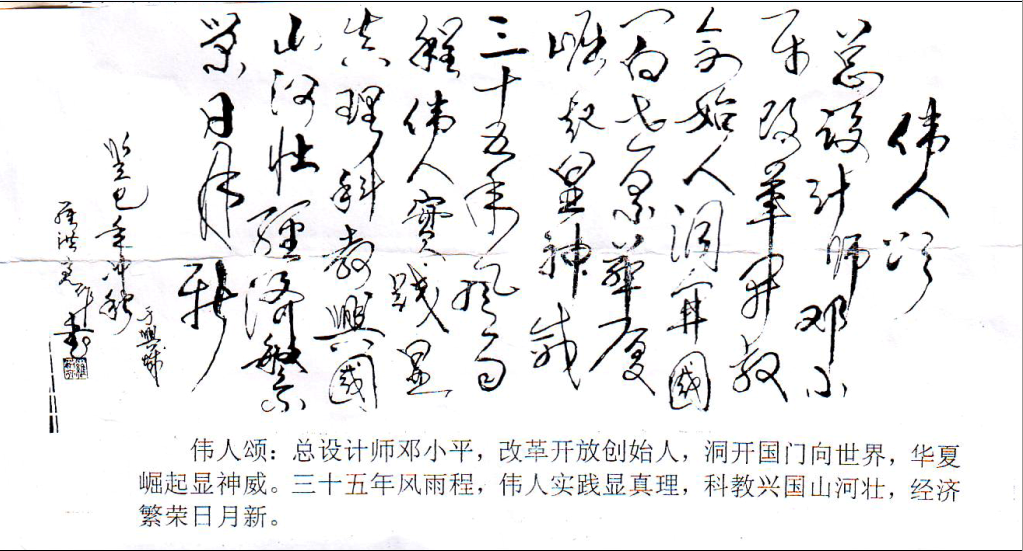 伟人颂
总设计师邓小
平改革开放
创始人洞开國
门向世界華夏
崛起显神威
三十五年风雨
程伟人實践显
真理科教興國
山河壮經濟繁
荣日月新
癸巳年仲秋
于興城
作书
伟人颂：总设计师邓小平，改革开放创始人，洞开国门向世界，华夏
崛起显神威。三十五年风雨程，伟人实践显真理，科教兴国山河壮，经济
繁荣日月新。